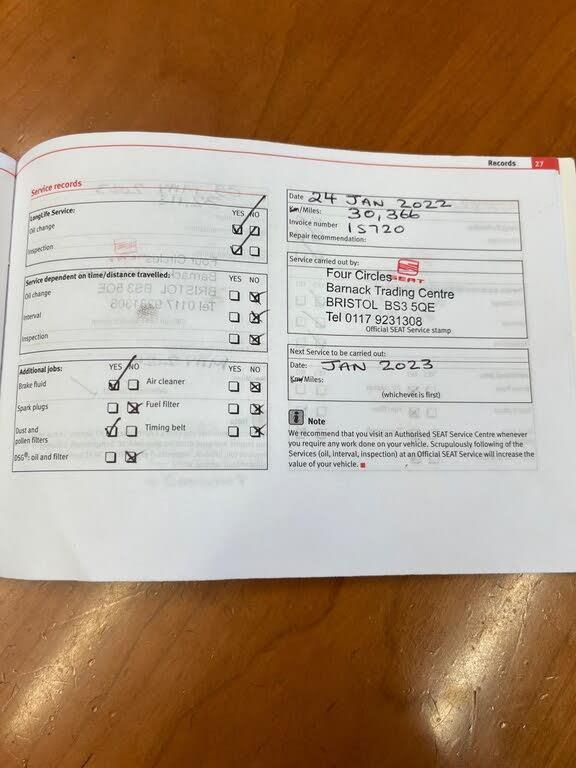 Records 27
Service records
LongLife Service: YES NO
Oil change
Inspection
Service dependent on time/distance travelled: YES NO
Oil change
Interval
Inspection
Additional jobs: YES NO YES NO
Brake fluid Air cleaner
Spark plugs Fuel filter
Dust and Timing belt
pollen filters
DSG®: oil and filter
Date 24 JAN 2022
Km/Miles: 30,366
Invoice number 15720
Repair recommendation:
Service carried out by:
Four Circles SEAT
Barnack Trading Centre
BRISTOL BS3 5QE
Tel 0117 9231308
Official SEAT Service stamp
Next Service to be carried out:
Date: JAN 2023
Km/Miles:
(whichever is first)
Note
We recommend that you visit an Authorised SEAT Service Centre whenever
you require any work done on your vehicle. Scrupulously following of the
Services (oil, interval, inspection) at an Official SEAT Service will increase the
value of your vehicle.